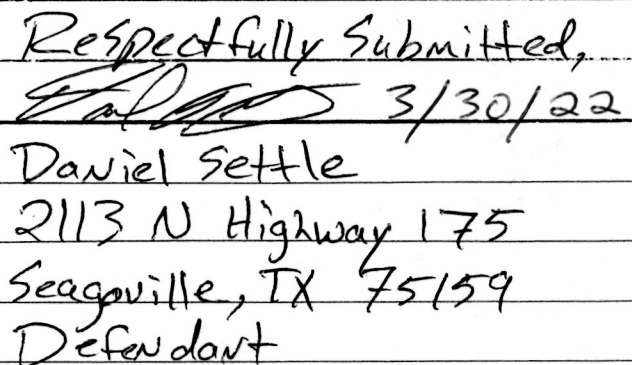 Respectfully Submitted,
3/30/22
Daniel Settle
2113 N Highway 175
Seagoville, TX 75159
Defendant